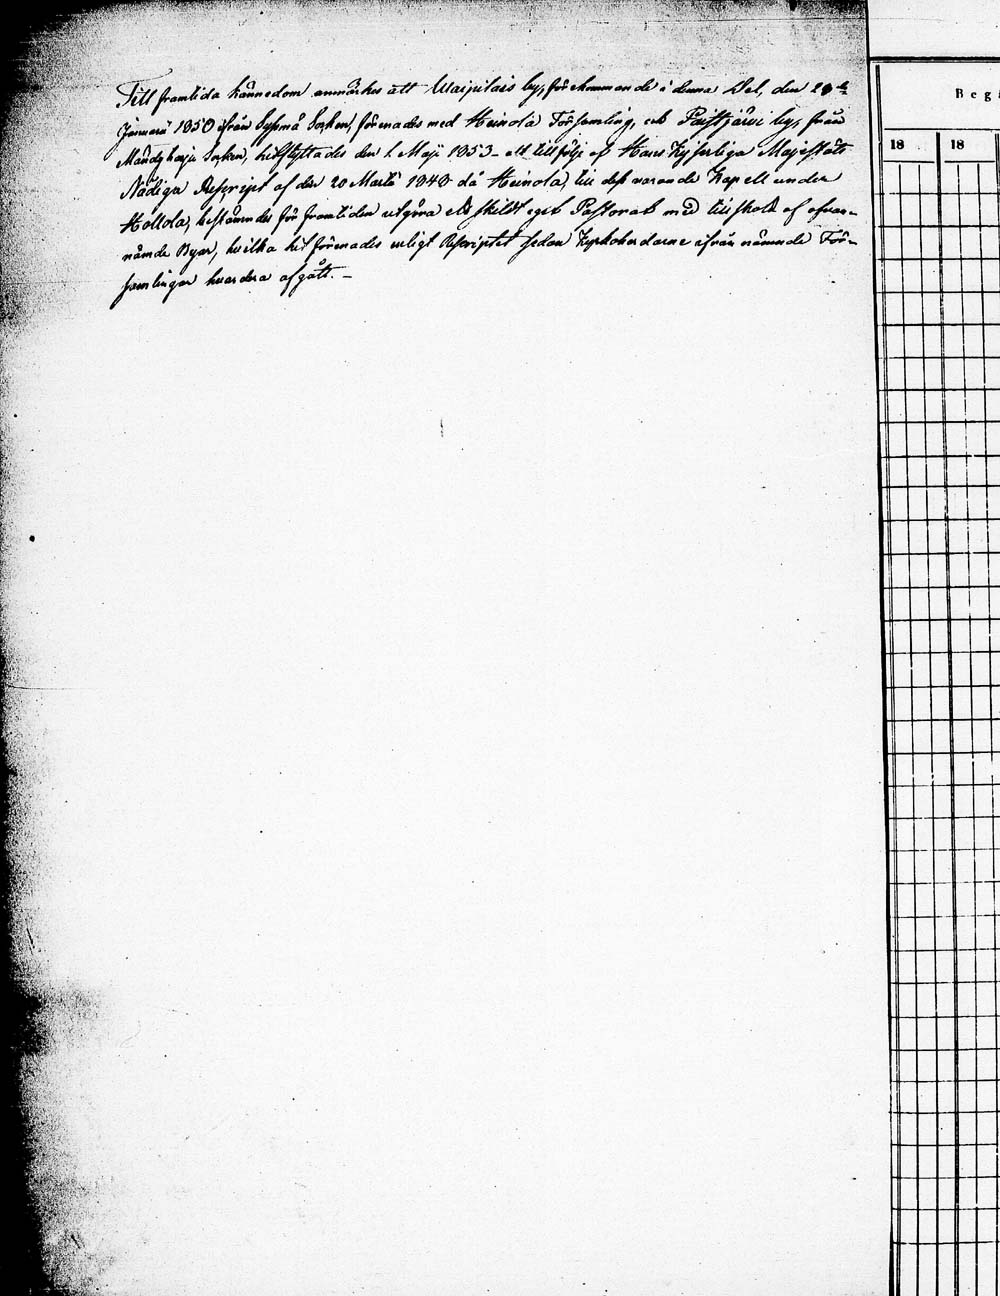 Till framtida kännedom anmärkes att Maipilais by, förekommande i denna Del, den 29de
Januarii 1850 ifrån Sysmä Socken, förenades med Heinola Församling, och Paistjärvi by, från
Mändyharju Socken, hitflyttades den 1. Maji 1853 - allt till följe af Hans Kejserliga Majestäts
Nådiga Rescript af den 20 Martii 1840 då Heinola, till dess varande Kapell under
Hollola, bestämdes för framtiden utgöra ett skildt eget Pastorat med tillskott af ofvan-
nämde Byar, hvilka hit förenades enligt Rescriptet sedan Kyrkoherdarne ifrån nämnde För-
samlingar hvardera afgått. -
Beg
18 18